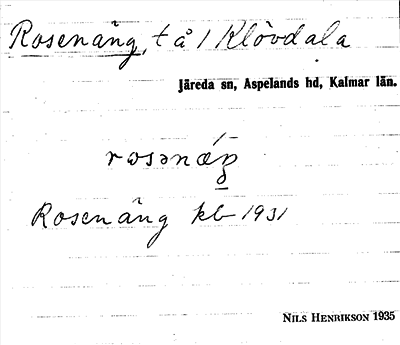 Rosenäng, t å 1 Klövdala
Järeda sn, Aspelands hd, Kalmar län.
Rosenäng kb 1931
NILS HENRIKSON 1935